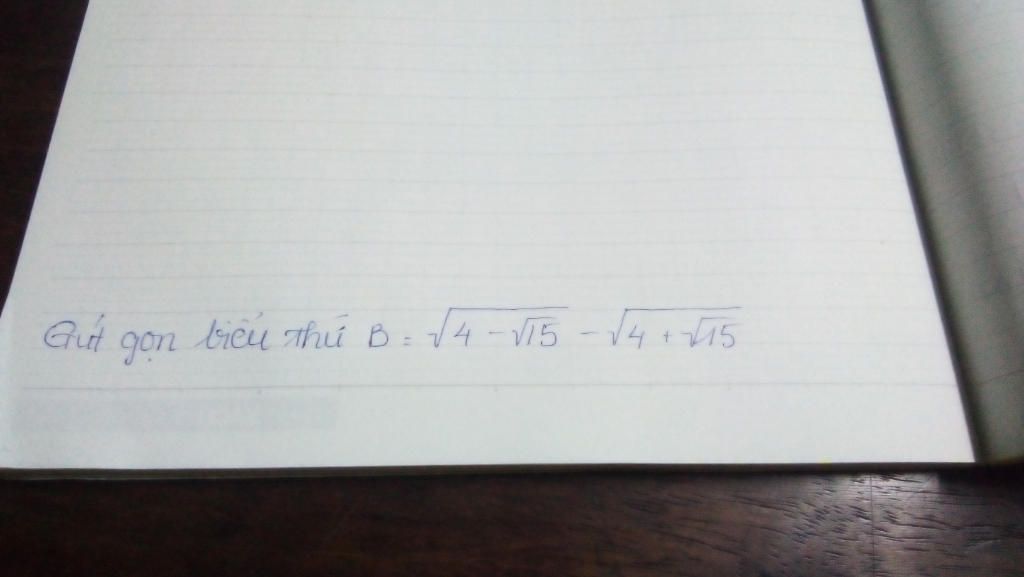 Rút gọn biểu thứ B = √(4 - √15) - √(4 + √15)